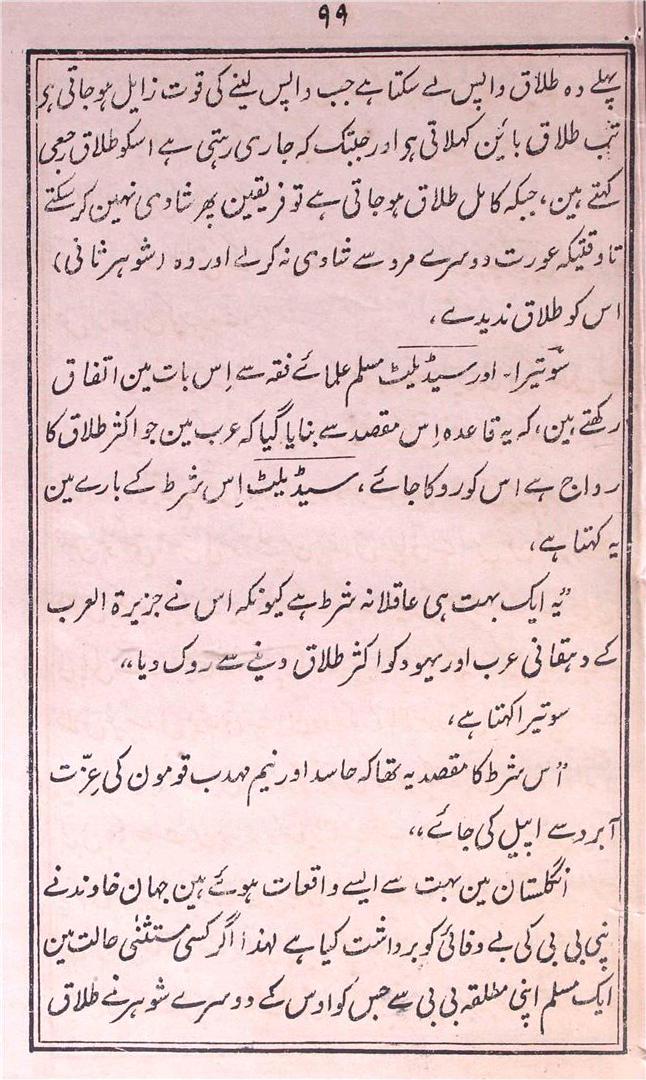 ۹۹
پہلے وہ طلاق واپس لے سکتا ہے جب واپس لینے کی قوت زایل ہوجاتی ہو
تب طلاق بائین کہلاتی ہو اور جبتک کہ جاری رہتی ہے اسکو طلاق رجعی
کہتے ہین، جبکہ کامل طلاق ہوجاتی ہے تو فریقین پھر شادی نہین کرسکتے
تاوقتیکہ عورت دوسرے مرد سے شادی نہ کرلے اور وہ (شوہر ثانی)
اس کو طلاق ندیدے،
سوتیرا۔ اور سیڈیلیٹ مسلم علمائے فقہ سے اِس بات مین اتفاق
رکھتے ہین، کہ یہ قاعدہ اِس مقصد سے بنایا گیا کہ عرب مین جو اکثر طلاق کا
رواج ہے اس کو روکا جائے، سیڈیلیٹ اِس شرط کے بارے مین
یہ کہتا ہے،
”یہ ایک بہت ہی عاقلانہ شرط ہے کیونکہ اس نے جزیرۃ العرب
کے دہقانی عرب اور یہود کو اکثر طلاق دینے سے روک دیا،،
سوتیرا کہتا ہے،
”اُس شرط کا مقصد یہ تھا کہ حاسد اور نیم مہدب قومون کی عِزّت
آبرو سے اپیل کی جائے،،
انگلستان مین بہت سے ایسے واقعات ہوئے ہین جہان خاوند نے
پنی بی بی کی بے وفائی کو برداشت کیا ہے لہذا اگر کسی مستثنٰی حالت مین
ایک مسلم اپنی مطلقہ بی بی سے جس کو اوس کے دوسرے شوہر نے طلاق